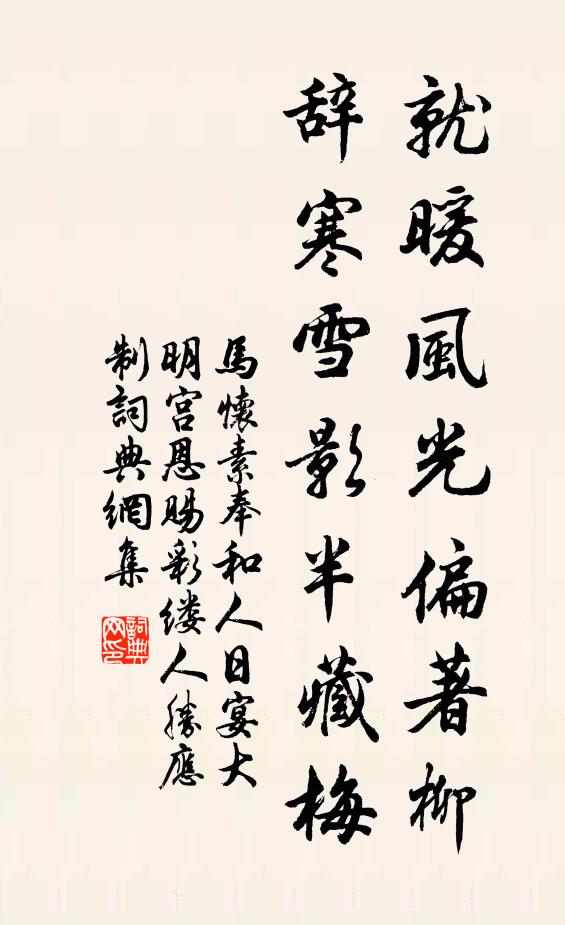 就暖風光偏著柳
辞寒雪影半藏梅
馬懷素奉和人日宴大
明宮恩賜彩缕人勝應
制詞典網集
詞典
网印